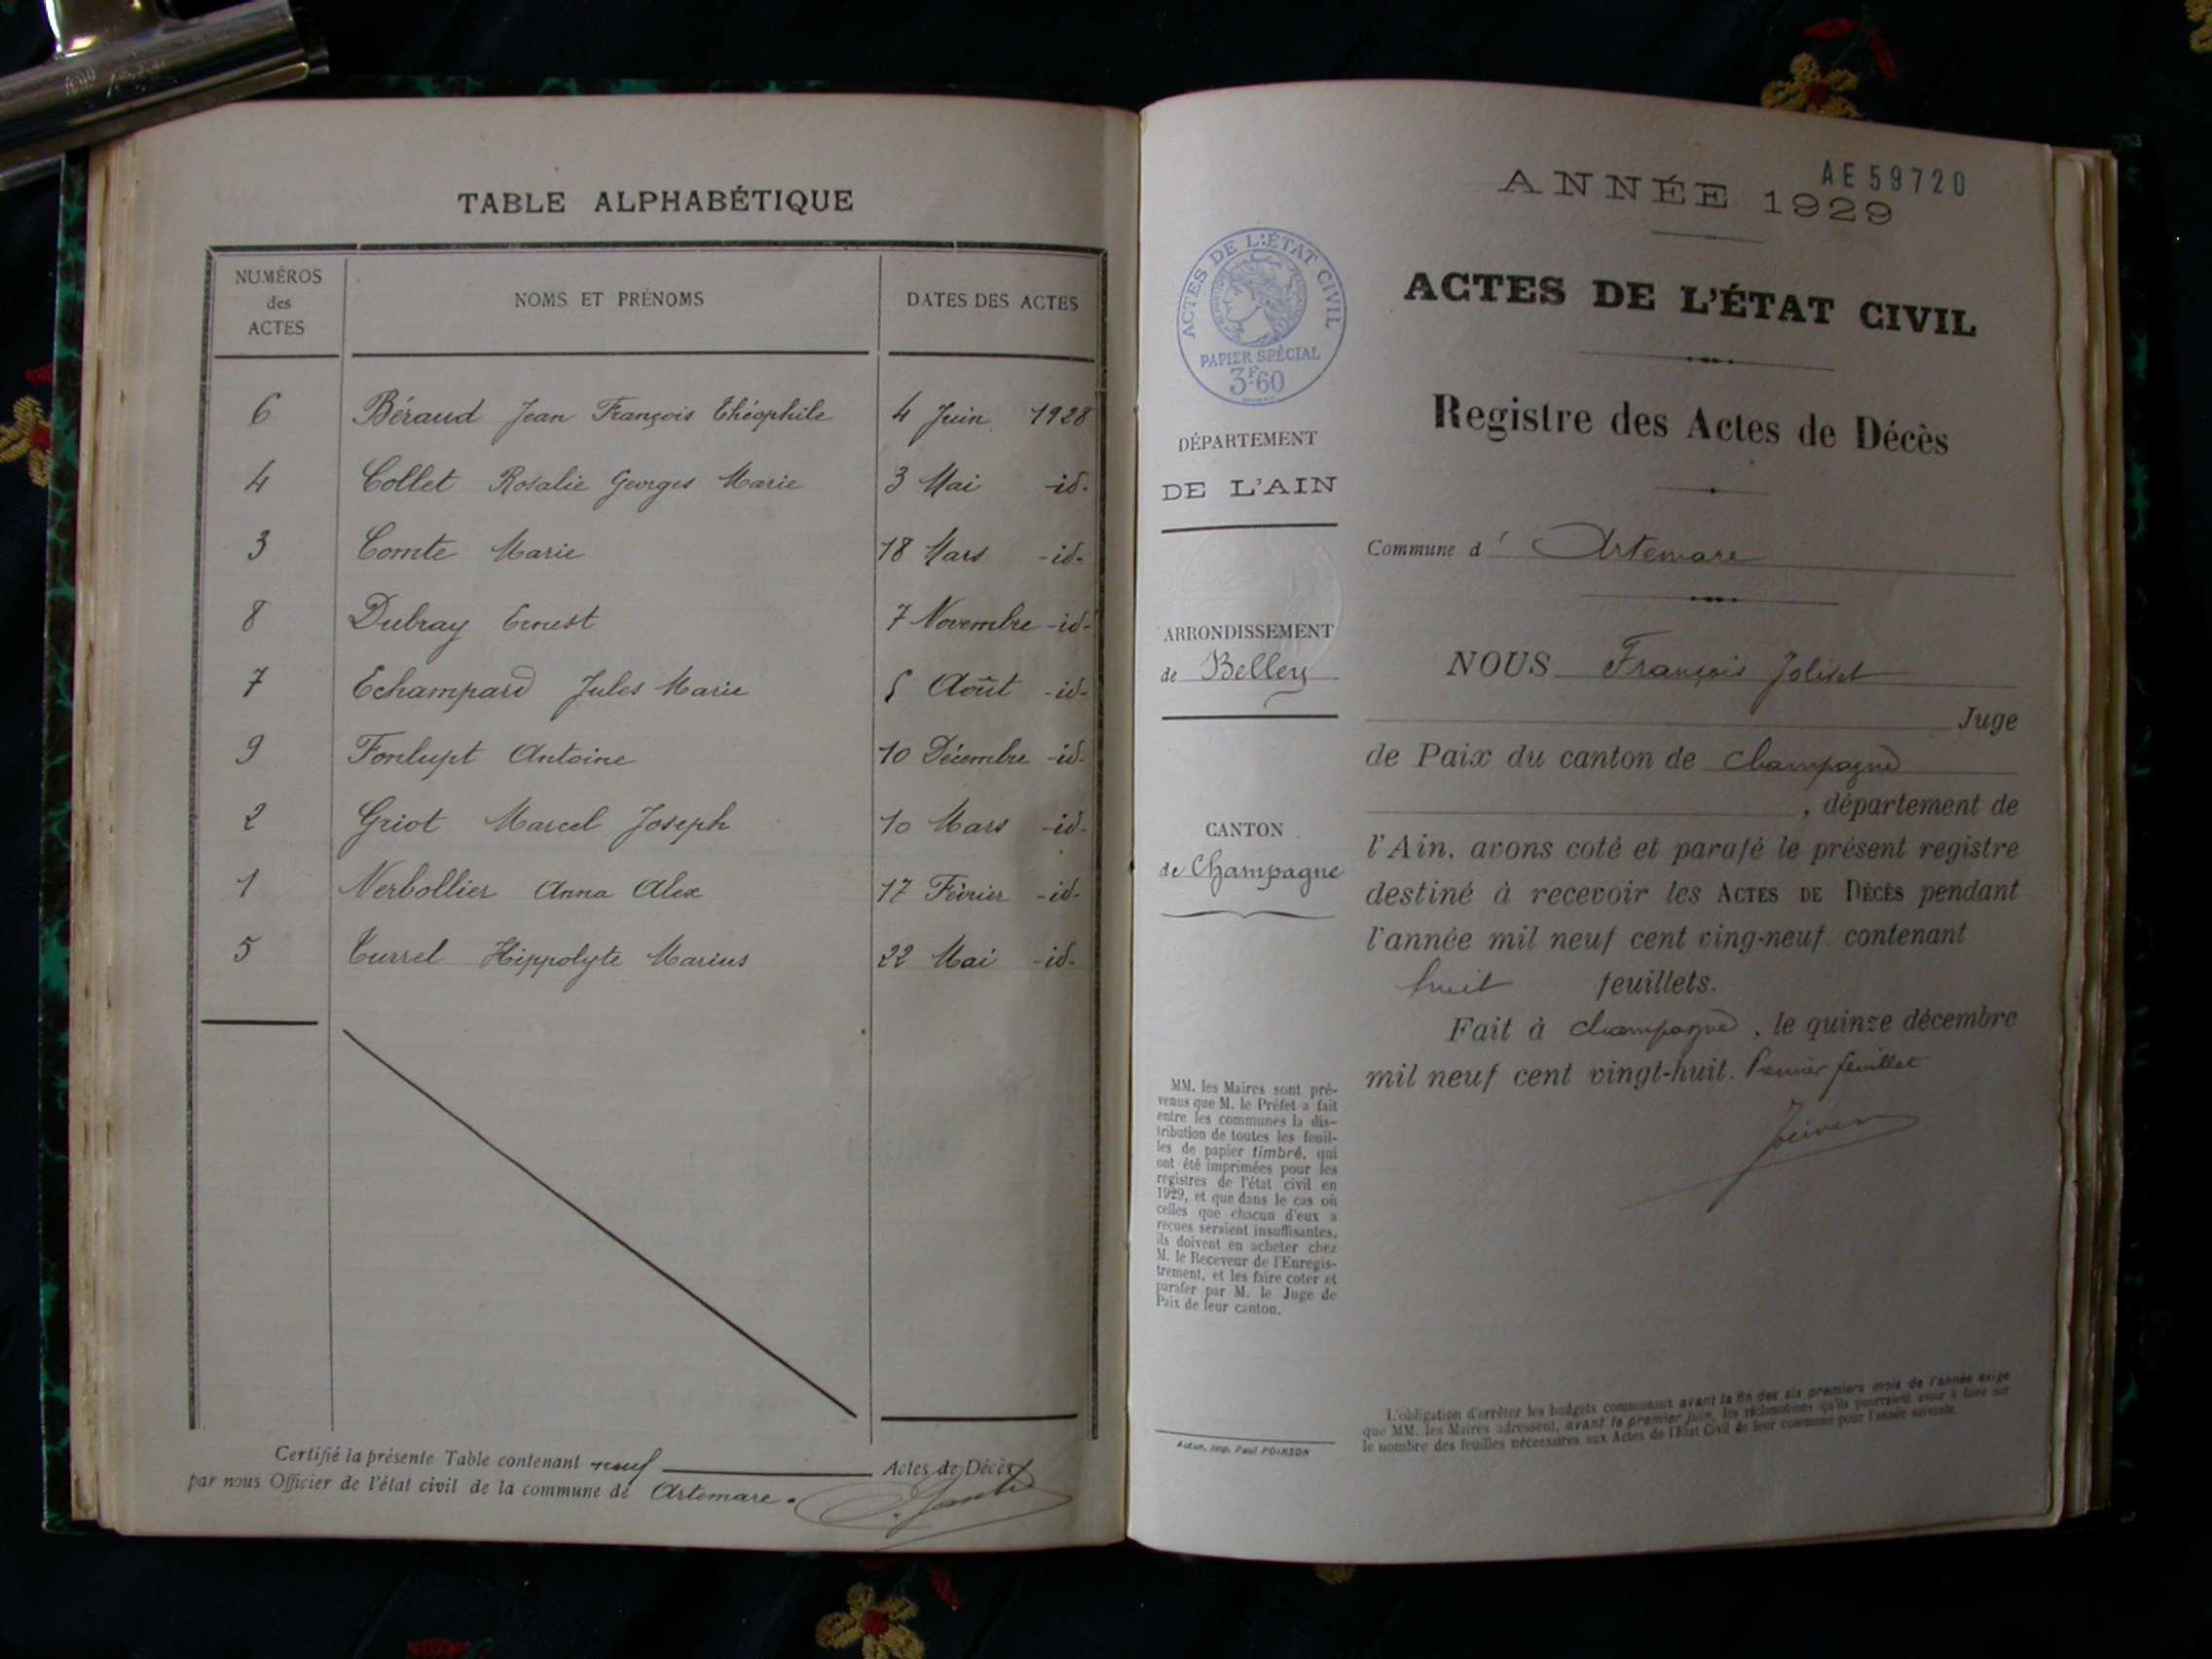 TABLE ALPHABÉTIQUE
NUMÉROS des ACTES NOMS ET PRÉNOMS DATES DES ACTES
6 Béraud Jean François Théophile 4 Juin 1928
4 Collet Rosalie Georges Marie 3 Mai -id-
3 Comte Marie 18 Mars -id-
8 Dubray Ernest 7 Novembre -id-
7 Echampard Jules Marie 5 Août -id-
9 Fonlupt Antoine 10 Décembre -id-
2 Griot Marcel Joseph 10 Mars -id-
1 Nerbollier Anna Alex 17 Février -id-
5 Turrel Hippolyte Marius 22 Mai -id-
Certifié la présente Table contenant neuf Actes de Décès
par nous Officier de l'état civil de la commune de Artemare.
AE 59720
ANNÉE 1929
ACTES DE L'ÉTAT CIVIL
PAPIER SPÉCIAL
3F.60
DÉPARTEMENT
DE L'AIN
ARRONDISSEMENT
de Belley
CANTON
de Champagne
MM. les Maires sont pré-
venus que M. le Préfet a fait
entre les communes la dis-
tribution de toutes les feuil-
les de papier timbré, qui
ont été imprimées pour les
registres de l'état civil en
1929, et que dans le cas où
celles que chacun d'eux a
reçues seraient insuffisantes,
ils doivent en acheter chez
M. le Receveur de l'Enregis-
trement, et les faire coter et
parafer par M. le Juge de
Paix de leur canton.
Autun, Imp. Paul POIRSON
ACTES DE L'ÉTAT CIVIL
Registre des Actes de Décès
Commune d' Artemare
NOUS François
Juge
de Paix du canton de Champagne
, département de
l'Ain, avons coté et parafé le présent registre
destiné à recevoir les ACTES DE DÉCÈS pendant
l'année mil neuf cent ving-neuf contenant
huit feuillets.
Fait à Champagne, le quinze décembre
mil neuf cent vingt-huit. Premier feuillet
L'obligation d'arrêter les budgets communaux avant la fin des six premiers mois de l'année exige
que MM. les Maires adressent, avant le premier juin, les réclamations qu'ils pourraient avoir à faire sur
le nombre des feuilles nécessaires aux Actes de l'Etat Civil de leur commune pour l'année suivante.